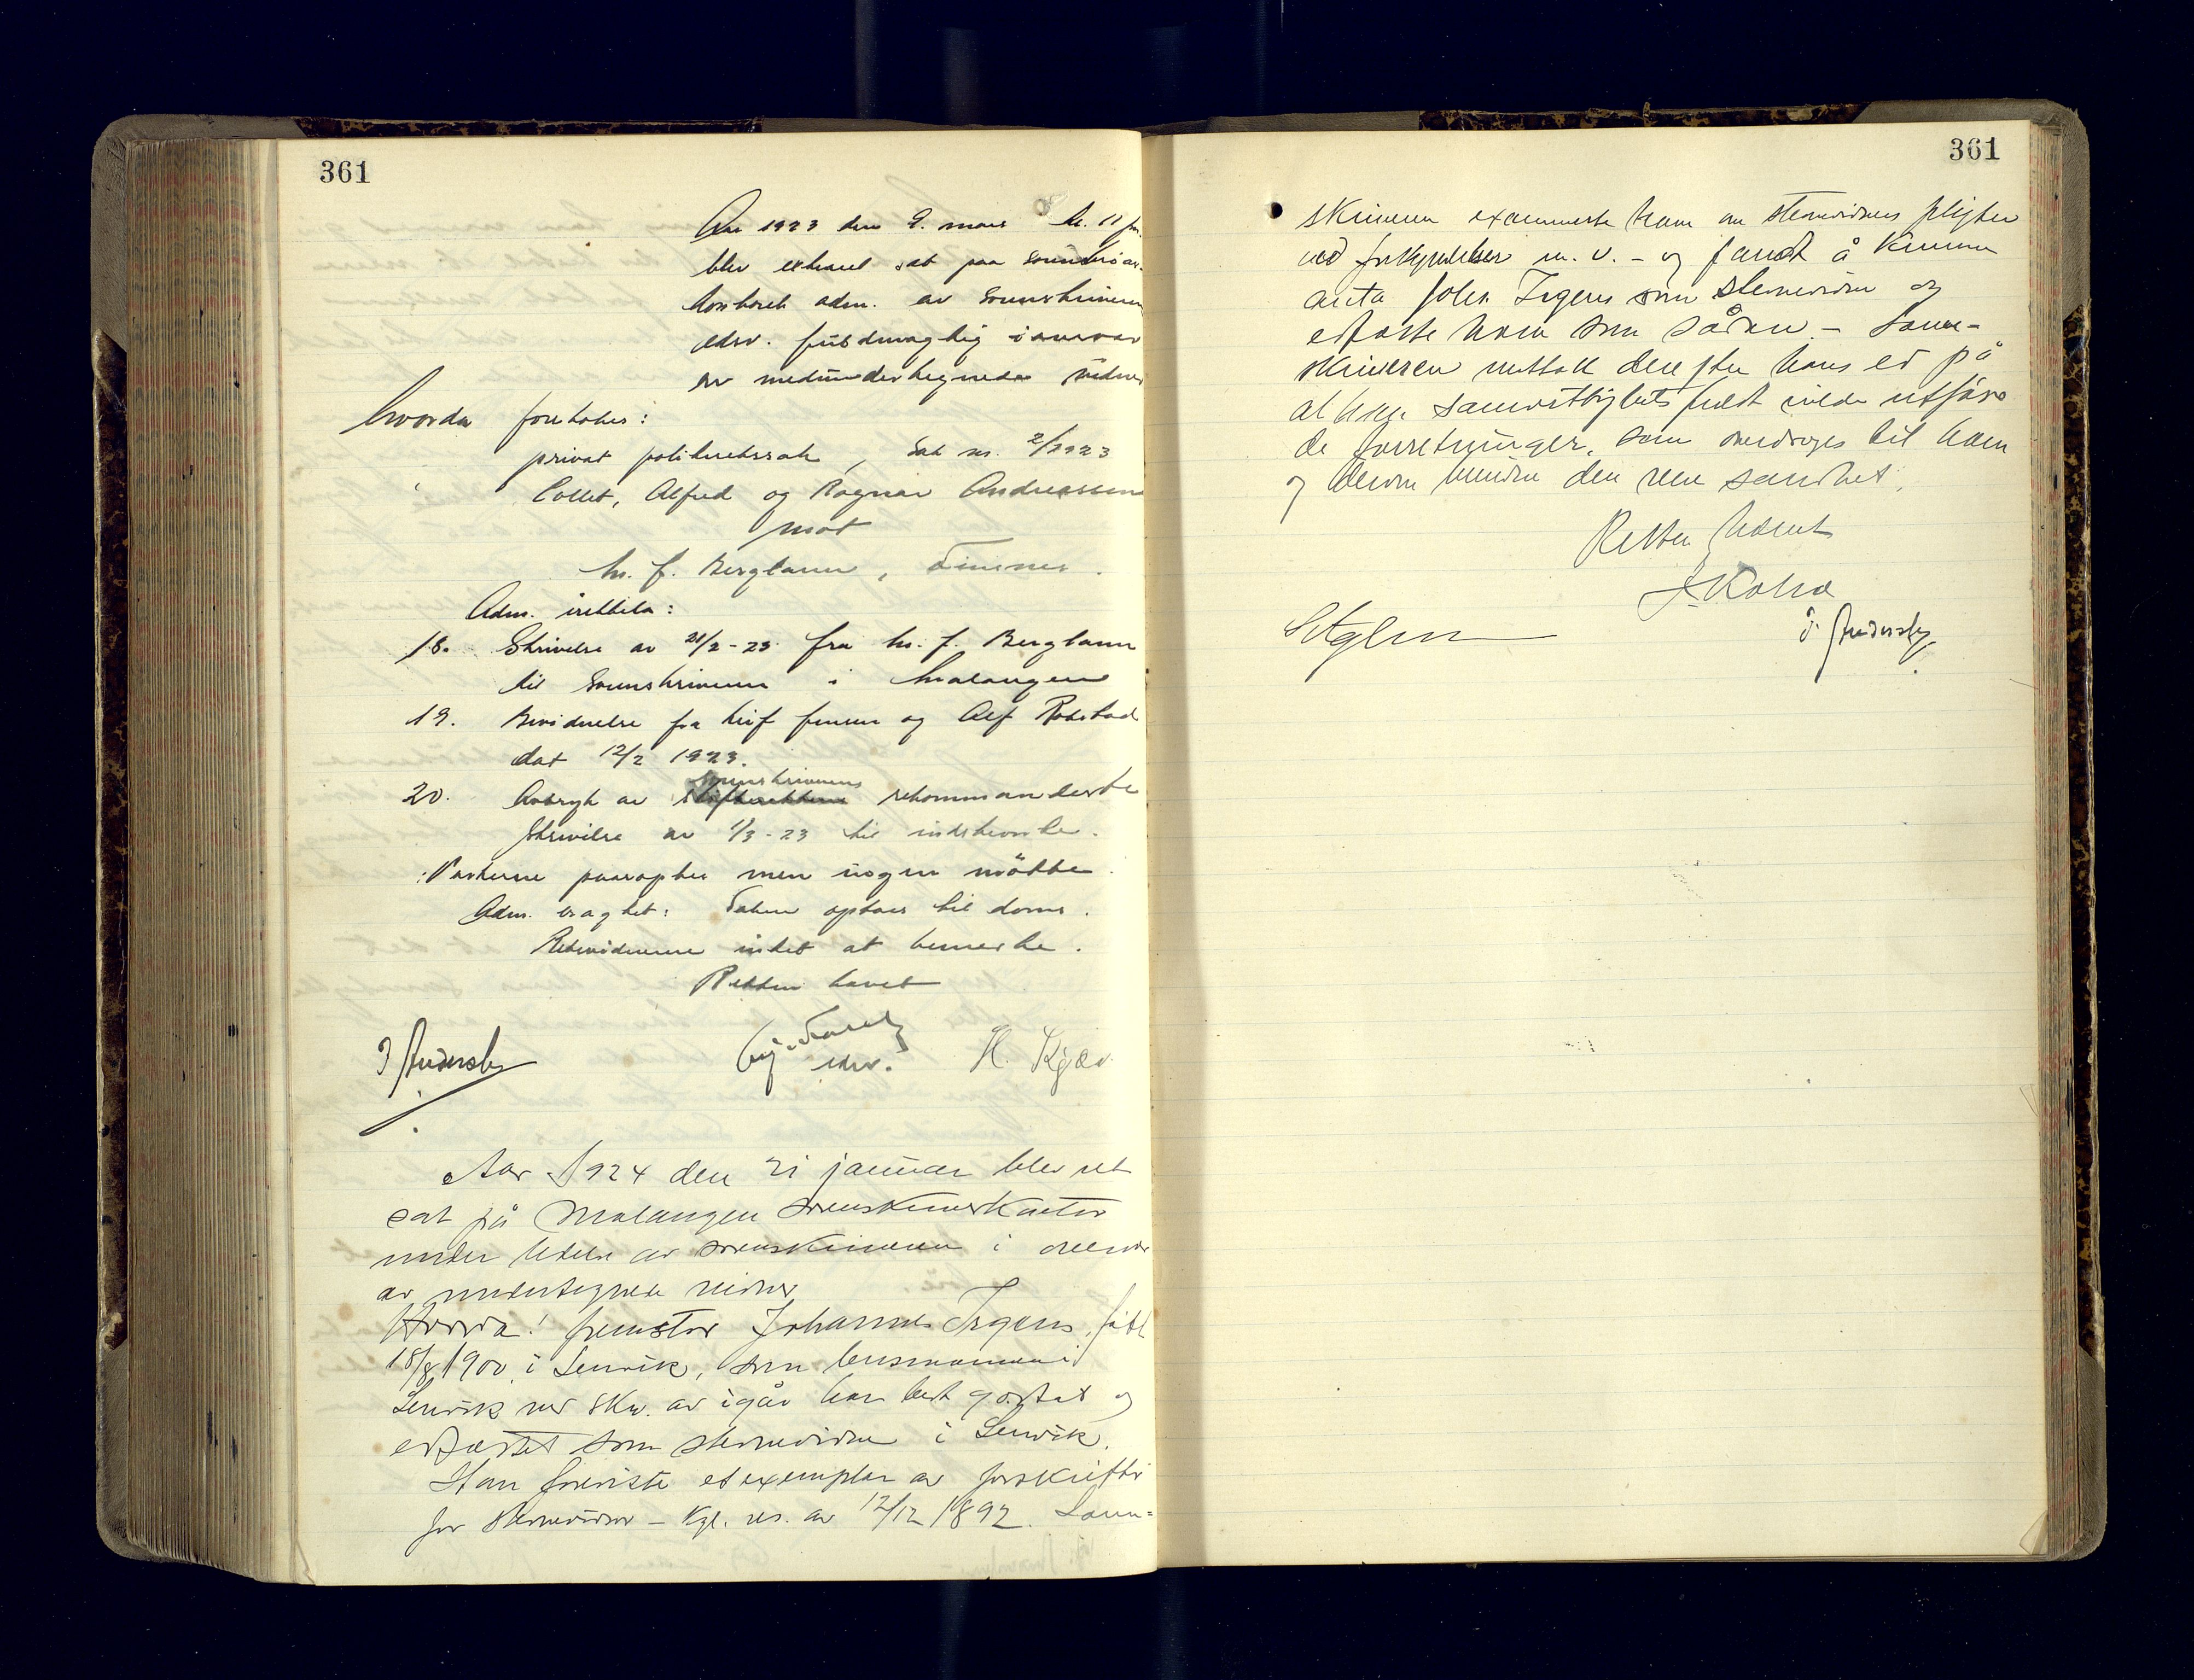 361
Aar 1923 den 9. mars kl. 11 fm.
blev ekstraret sat paa
kontoret adm. av Sorenskriveren
edsv. fuldmægtig i nærvær
av medundertegnede vidner
hvorda foretokes:
privat politiretssak, Sak nr. 2/1923
Collet, Alfred og Ragnar Andreassen
mot
M. f. Berglann, Finnsnes.
Adm. irettela:
18. Skrivelse av 21/2-23 fra M. f. Berglann
til Sorenskriveren i Malangen
19. Bevidnelse fra Leif Jensen og Alf Robstad
dat 12/2 1923.
20. Avtryk av Sorenskriverens rekommanderte
skrivelse av 1/3-23 til indstevnte.
Parterne paaroptes men ingen møtte.
Adm. eragtet: Saken optaes til doms.
Retsvidnerne intet at bemerke.
Retten hævet
J Andersen
edsv.
H. Kjær
Aar 1924 den 21 januar blev ret
sat på Malangen sorenskriverkontor
under ledelse av sorenskriveren i overvær
av undertegnede vidner
Hvorda: fremstod Johannes Irgens, født
18/8 1900 i Lenvik, som lensmannen i
Lenvik ved skr. av igår har bedt godtat og
edfæstet som stevnevidne i Lenvik.
Han foreviste et exemplar av forskrifter
for stevnevidner – Kgl. res. av 12/12 1892. Soren=
361
skriveren examinerte ham om stevnevidners pligter
ved forkyndelser m. v. – og fandt å kunne
anta Johs. Irgens som stevnevidne og
edfæste ham som sådan – Soren-
skriveren mottok derefter hans ed på
at han samvittighetsfuldt vilde utføre
de forretninger, som overdrages til ham
og derom vidne den rene sandhet.
Retten hævet
J. Andersen